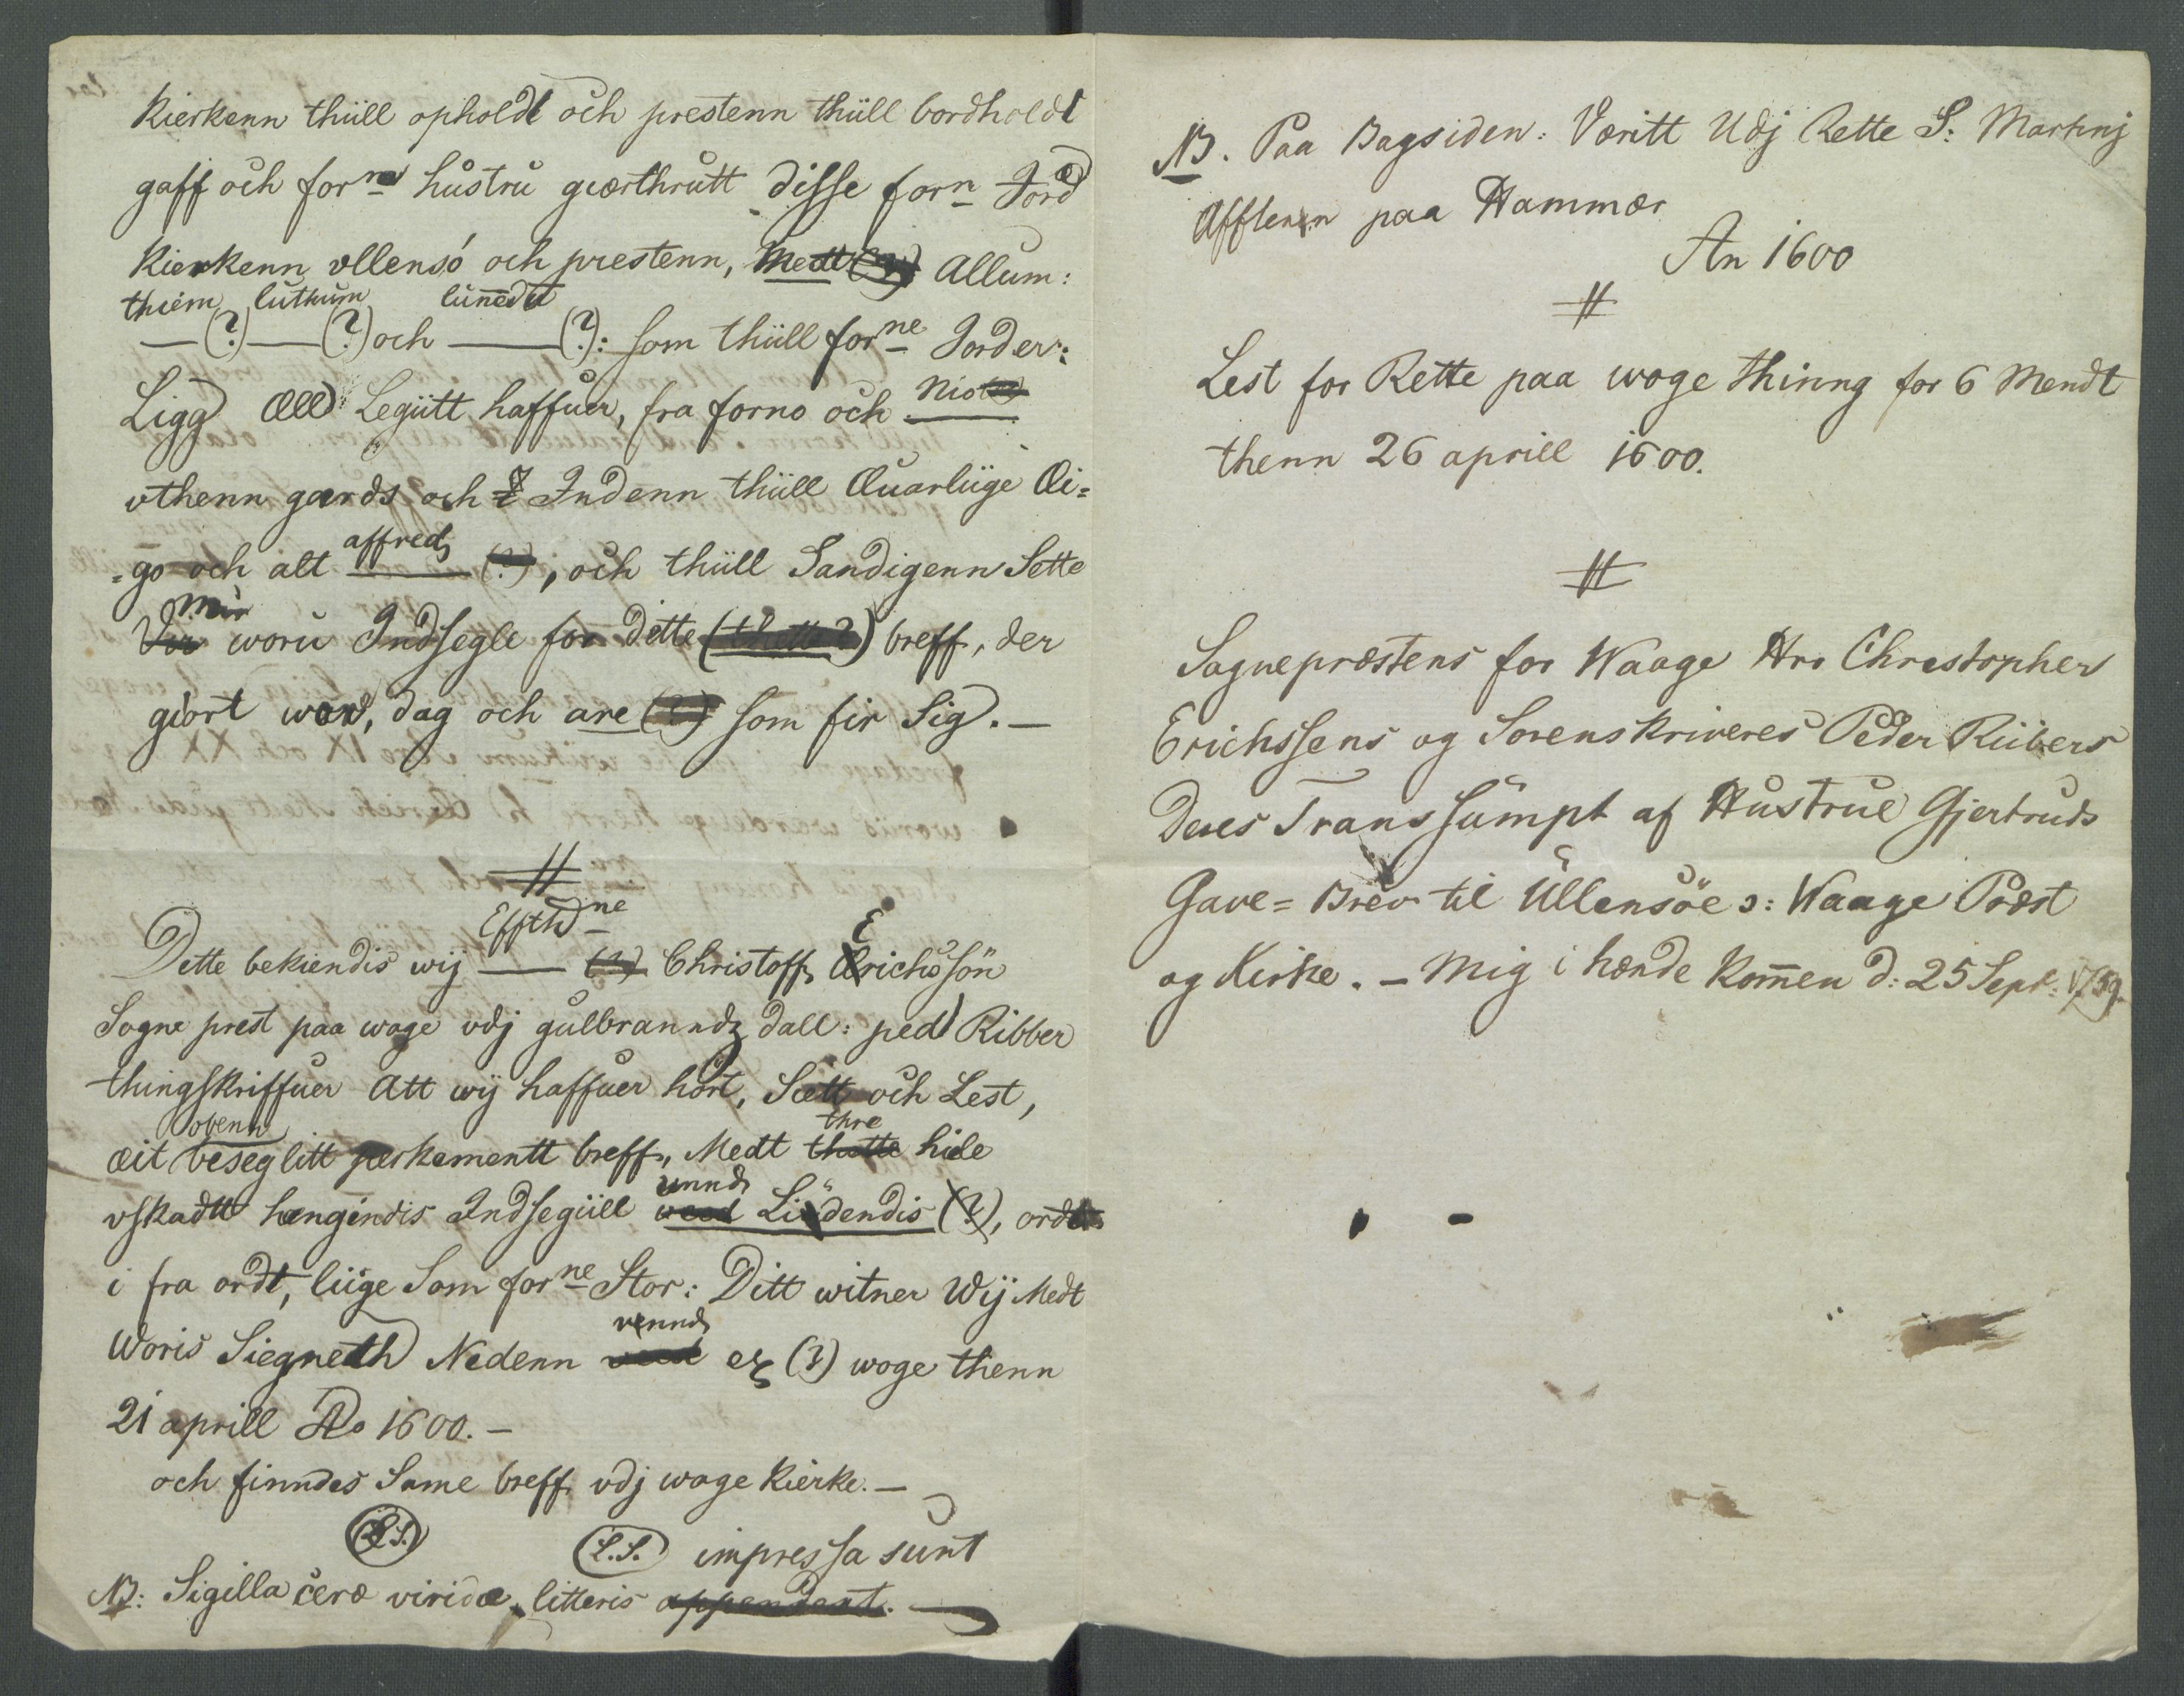 Kierkenn thüll opholdt och prestenn thüll bordholdt
gaff och forne hustru giærthrutt disse forn Jord
Kierkenn vllensó och prestenn, Medt (?) Allum:
thiem luthum lunēdu
—(?)—(?) och —(?): som thüll forne Jorder:
Ligg Æll Legütt haffuer, fra forno och Nio
vthenn gærds och Indenn thüll Æuarlüge Æi=
=go och alt affred (?), och thüll Sandigenn Sette
Mir
woru Indsegle for dette (thette?) breff, der
giort ward, dag och are (?) som fir Sig. —
#
Effthne
Dette bekiendis wij — (?) Christoff Erichssön
Sogne prest paa woge vdj gulbranndz dall: ped Ribber
thingskriffuer Att wij haffuer hört, Sett och Lest,
obenn thre
æit beseglitt perkementt breff, Medt thette hiele
unnd
vskadtt hængindis Indsegüll Lüdendis (?), ordt
i fra ordt, liige Som forne Stor: Ditt witner Wij Medt
vnnd
Woris Siegneth Nedenn (?) woge thenn
21 aprill Ao 1600. —
och finndes Same breff vdj woge Kierke. —
L.S. L.S. impressa sunt
NB: Sigilla ceræ viridæ litteris appendent. —
NB. Paa Bagsiden: Væritt Udj Rette S: Martinj
Afftenn paa Hammer
An 1600
#
Lest for Rette paa woge thinng for 6 Mendt
thenn 26 aprill 1600.
#
Sognepræstens for Waage Hrr Christopher
Erichssens og Sorenskriveres Peder Riibers
Deres Transsumpt af Hustrue Gjertruds
Gave=Brev til Ullensöe ɔ: Waage Præst
og Kirke. — Mig i hænde kom̄en d: 25 Sept: 1759.